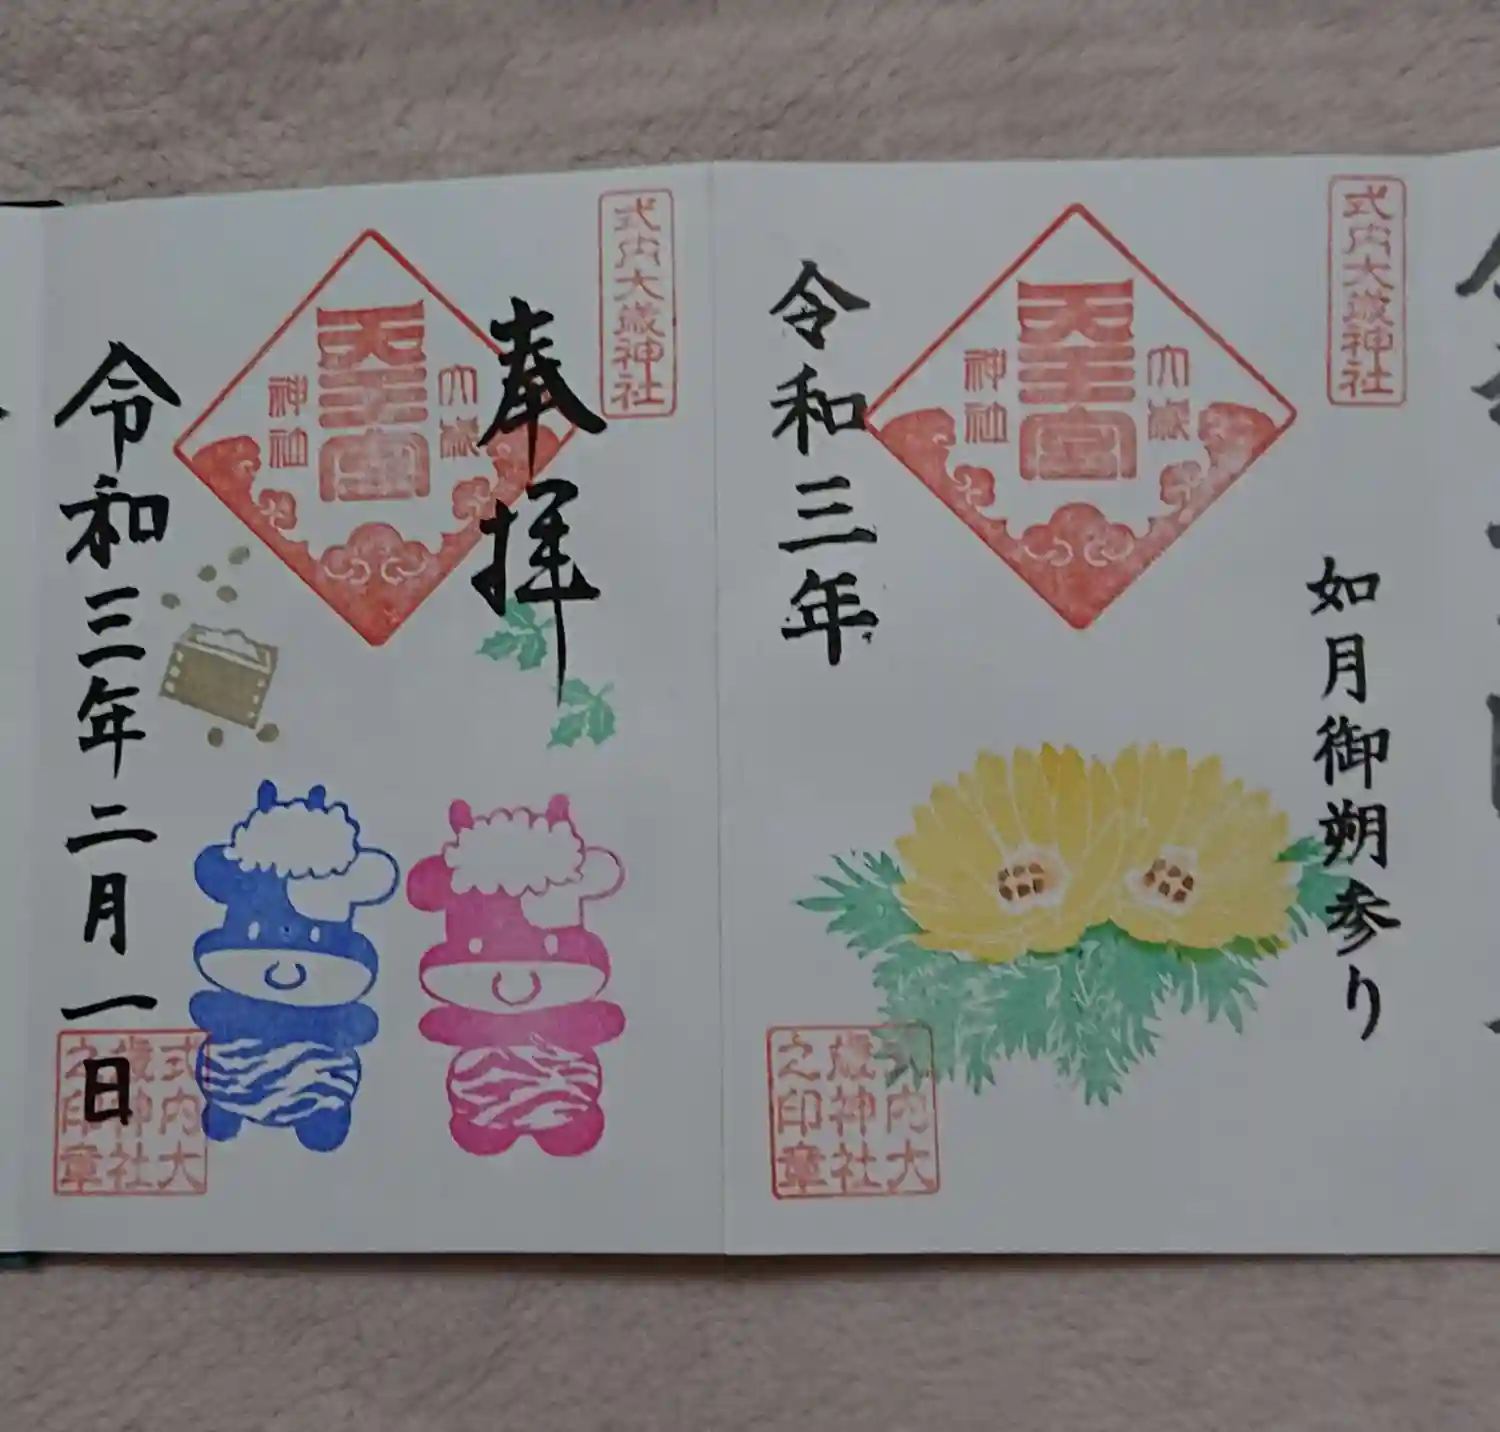 式内大歳神社
如月御朔参り
大歳
天王宮
神社
令和三年
式内大
歳神社
之印章
式内大歳神社
奉拝
大歳
天王宮
神社
令和三年二月一日
式内大
歳神社
之印章